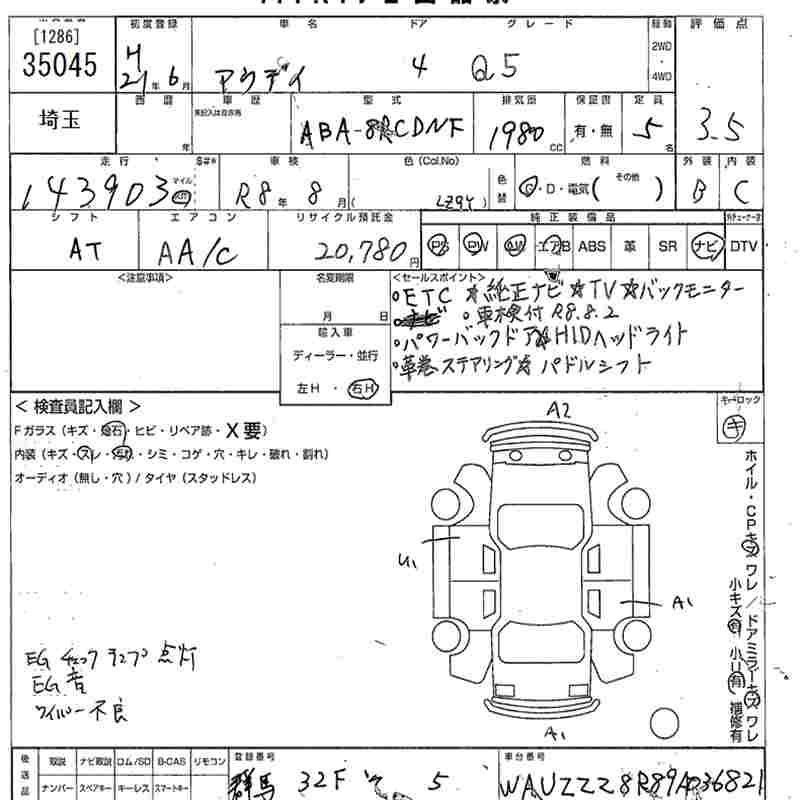 [1286]
35045
初度登録 車名 ドア グレード 駆動 評価点
H 21年 6月 アウディ 4 Q5 2WD・4WD
埼玉
西暦 車歴 型式 排気量 保証書 定員
年 ABA-8RCDNF 1980 CC 有・無 5名 3.5
走行 S#* 車検 色(Col.No) 色替 燃料 外装 内装
143903 マイル R8年 8月 ( LZ9Y ) G・D・電気( その他 ) B C
シフト エアコン リサイクル預託金 純正装備品
AT AA/C 20,780円 PS PW AW エアB ABS 革 SR ナビ DTV
<注意事項> 名変期限 <セールスポイント>
月 日
輸入車
ディーラー・並行
左H・右H
・ETC ☆純正ナビ☆TV☆バックモニター
・車検付 R8.8.2
・パワーバックドア☆HIDヘッドライト
・革巻ステアリング☆パドルシフト
< 検査員記入欄 >
キーロック
キ
Fガラス (キズ・飛石・ヒビ・リペア跡・X要)
内装 (キズ・スレ・汚れ・シミ・コゲ・穴・キレ・破れ・割れ)
オーディオ (無し・穴) / タイヤ (スタッドレス)
A2
U1
A1
A1
ホイル・CPキズ ワレ / ドアミラーキズ ワレ
小キズ有 小U有 補修有
EG チェックランプ 点灯
EG 音
ワイパー不良
後送品 取説 ナビ取説 ロム/SD B-CAS リモコン 登録番号 車台番号
ナンバー スペアキー キーレス スマートキー 群馬 32F 5 WAUZZZ8R89A036821